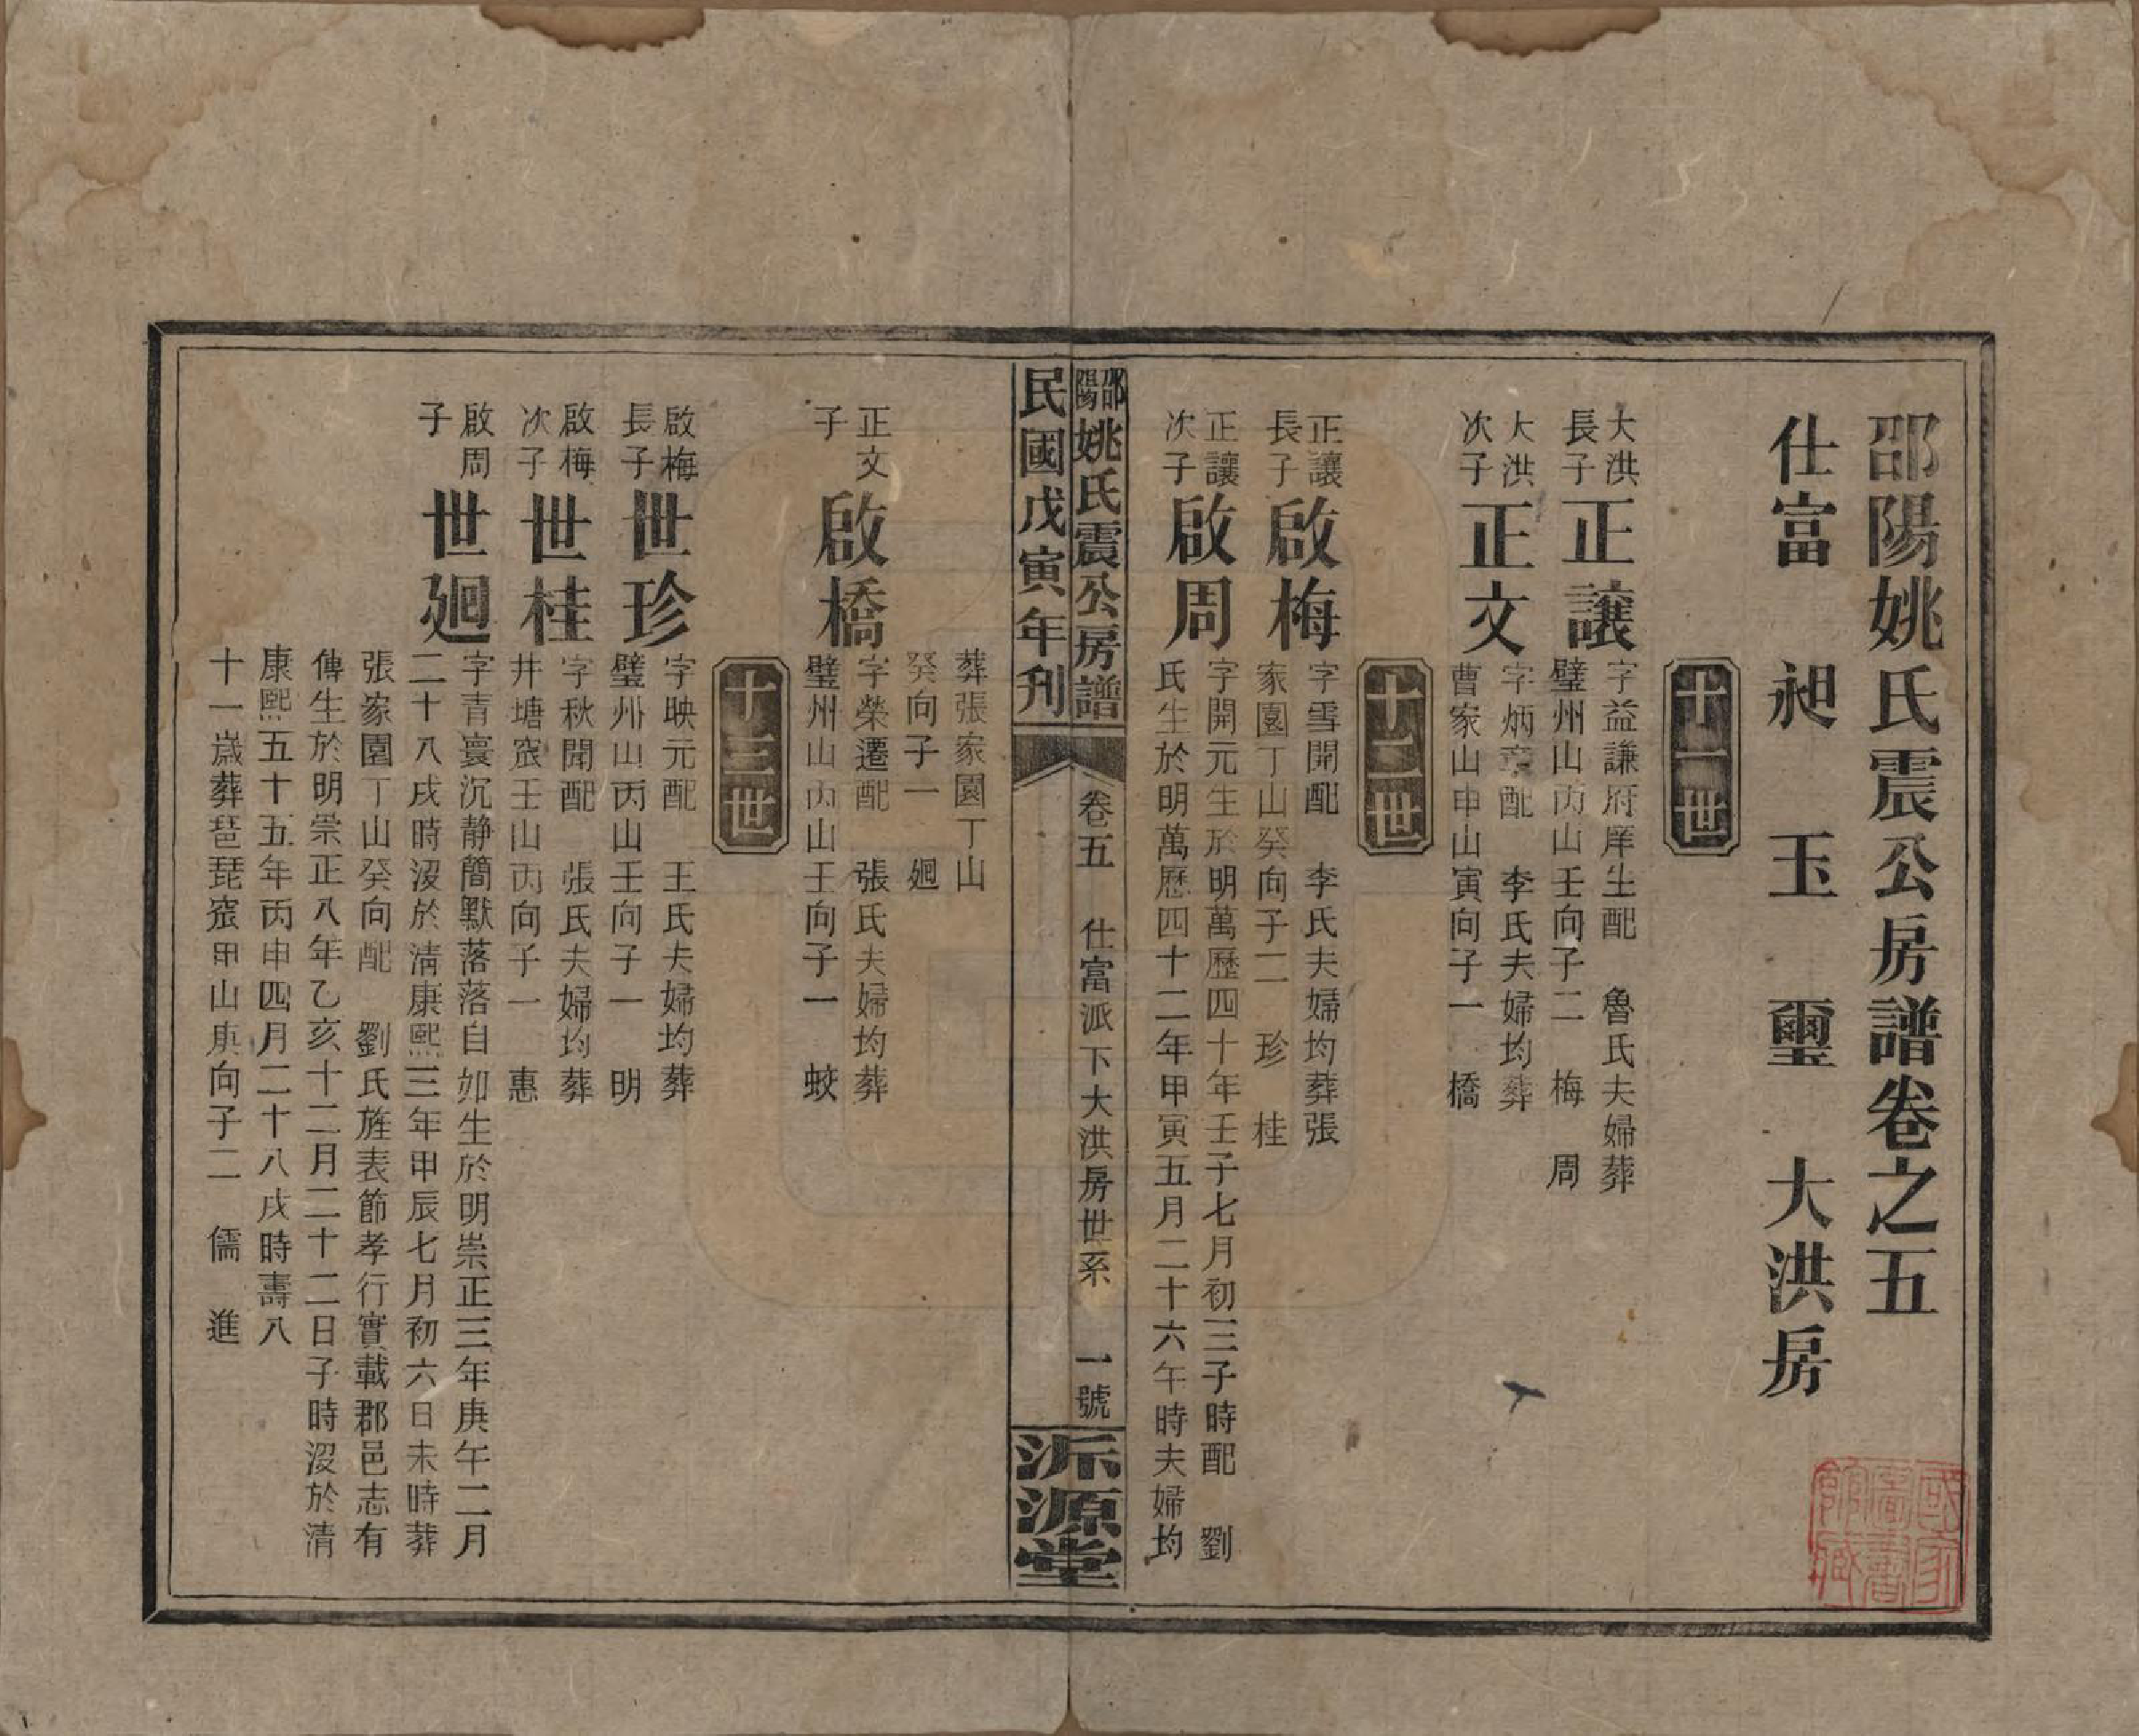 邵陽姚氏震公房譜卷之五
仕富　昶　玉　璽　大洪房
十一世
大洪長子　正讓　字益謙府庠生配　魯氏夫婦葬
璧州山丙山壬向子二　梅　周
大洪次子　正文　字炳章配　李氏夫婦均葬
曹家山申山寅向子一　橋
十二世
正讓長子　啟梅　字雪開配　李氏夫婦均葬張
家園丁山癸向子二　珍　桂
正讓次子　啟周　字開元生於明萬歷四十年壬子七月初三子時配　劉
氏生於明萬歷四十二年甲寅五月二十六午時夫婦均
邵陽姚氏震公房譜　卷五　仕富派下大洪房世系　一號
民國戊寅年刋　派源堂
葬張家園丁山
癸向子一　廻
正文子　啟橋　字榮遷配　張氏夫婦均葬
璧州山丙山壬向子一　蛟
十三世
啟梅長子　世珍　字映元配　王氏夫婦均葬
璧州山丙山壬向子一　明
啟梅次子　世桂　字秋聞配　張氏夫婦均葬
井塘窊壬山丙向子一　惠
啟周子　世廻　字青寰沉静簡默落落自如生於明崇正三年庚午二月
二十八戌時沒於清康熙三年甲辰七月初六日未時葬
張家園丁山癸向配　劉氏旌表節孝行實載郡邑志有
傳生於明崇正八年乙亥十二月二十二日子時沒於清
康熙五十五年丙申四月二十八戌時壽八
十一歲葬琶琵窊甲山庚向子二　儒　進
國家圖書館藏